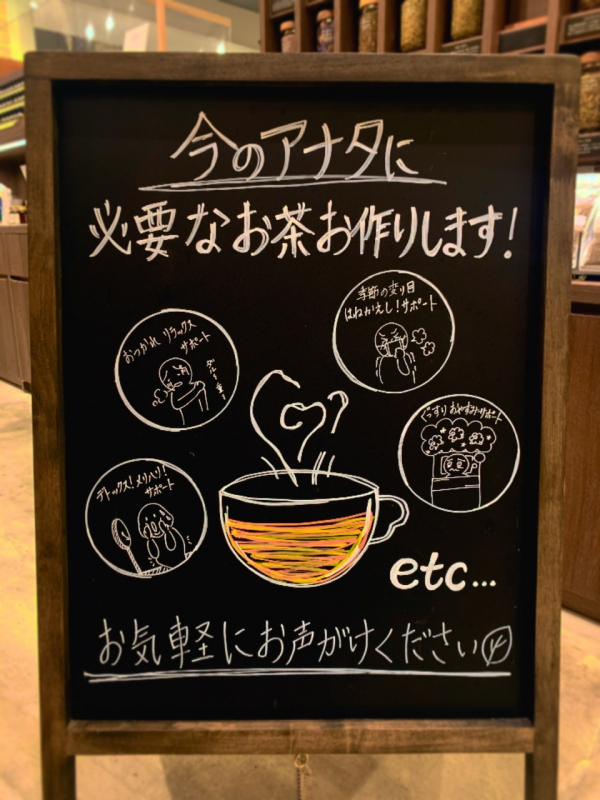 今のアナタに
必要なお茶お作りします!
季節の変り目
はねかえし!サポート
おつかれ リラックス
サポート
ぐっすり おやすみサポート
デトックス!メリハリ!
サポート
etc...
お気軽にお声がけください